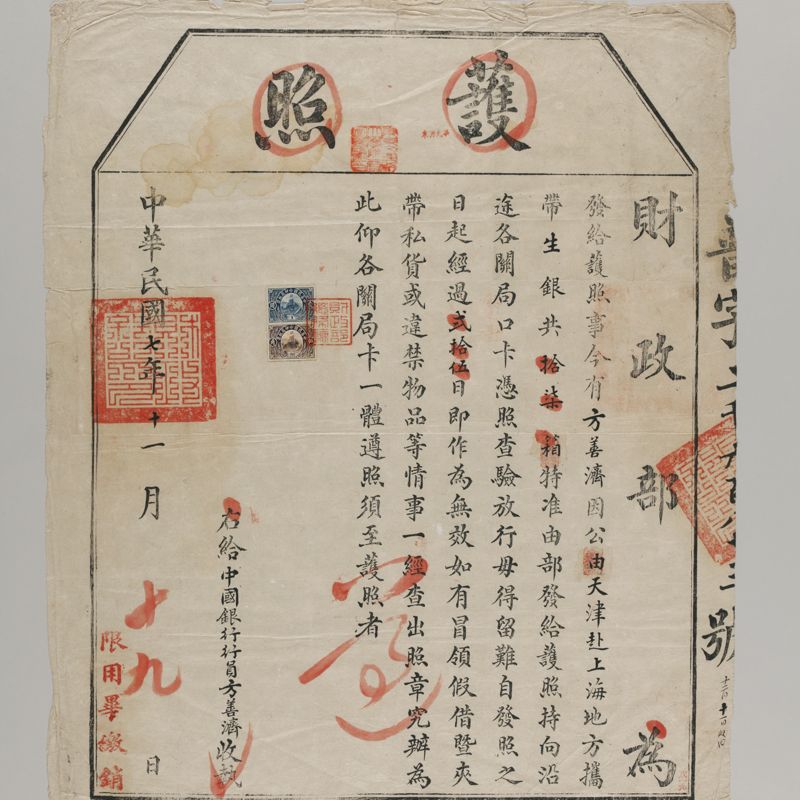 護照
財政部為
發給護照事今有方善濟因公由天津赴上海地方攜
帶生銀共拾柒箱特准由部發給護照持向沿
途各關局口卡憑照查驗放行毋得留難自發照之
日起經過弍拾伍日即作為無效如有冒領假借暨夾
帶私貨或違禁物品等情事一經查出照章究辦為
此仰各關局卡一體遵照須至護照者
右給中國銀行行員方善濟收執
中華民國七年十一月十九日
限用畢繳銷